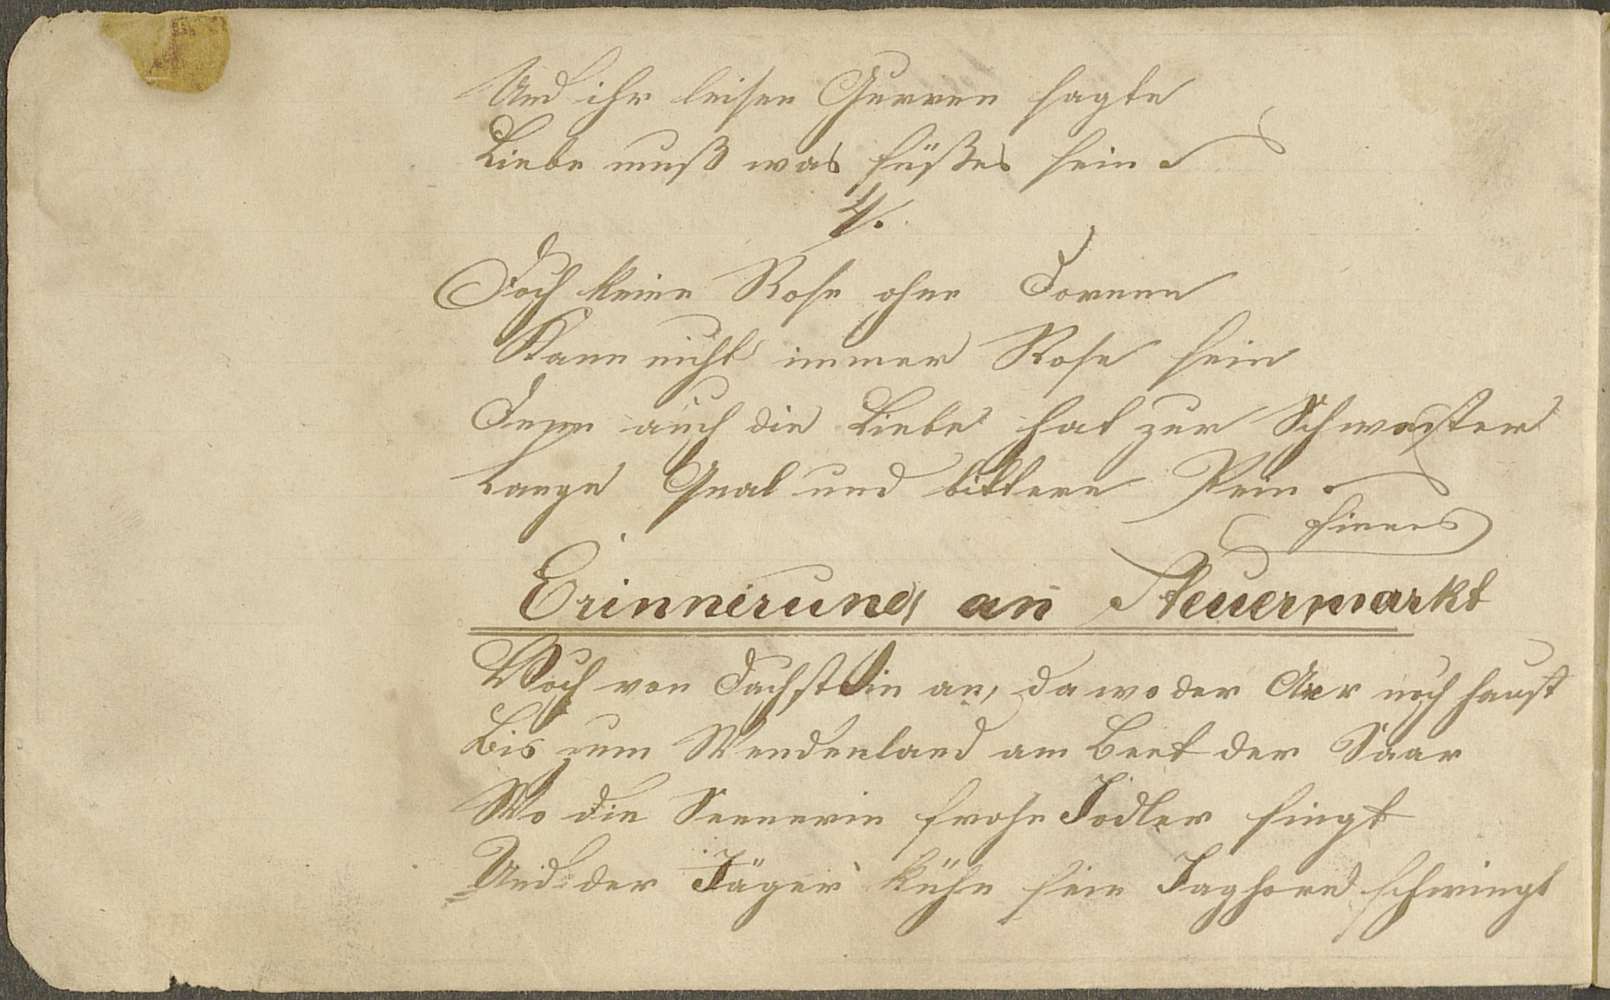 Und ihr leisen Gurren sagte
Liebe muß was süßes sein
4/.
Doch keine Rose ohne Dornen
Kann nicht immer Rose sein
Denn auch die Liebe hat zur Schwester
Lange Qual und bittere Pein
Erinnerung an Steuermarkt
Hoch von Dachstein an, da wo der Aar noch haust
Bis zum Wendenland am Bett der Saar
Wo die Sennerin frohe Jodler singt
Und der Jäger kühn sein Jaghorn schwingt